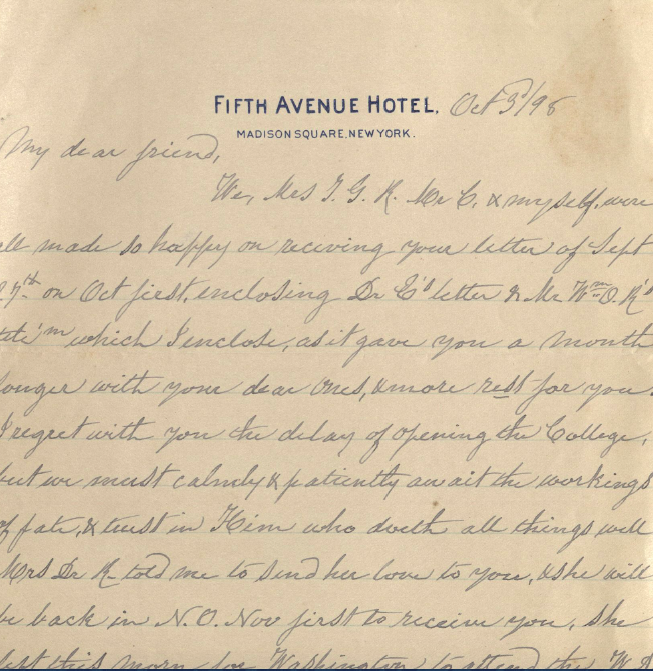 FIFTH AVENUE HOTEL. Oct 3d/98
MADISON SQUARE, NEW YORK.
My dear friend,
We, Mrs I. G. R. Mr C. & myself, were
all made so happy on receiving your letter of Sept
27th on Oct first, enclosing Dr E's letter & Mr Wm O. R's
which I enclose, as it gave you a month
longer with your dear ones, & more rest for you.
I regret with you the delay of opening the College,
but we must calmly & patiently await the workings
of fate, & trust in Him who doeth all things well
Mrs Dr R told me to send her love to you, & she will
be back in N.O. Nov first to receive you, she
left this morn for Washington to attend the W. D